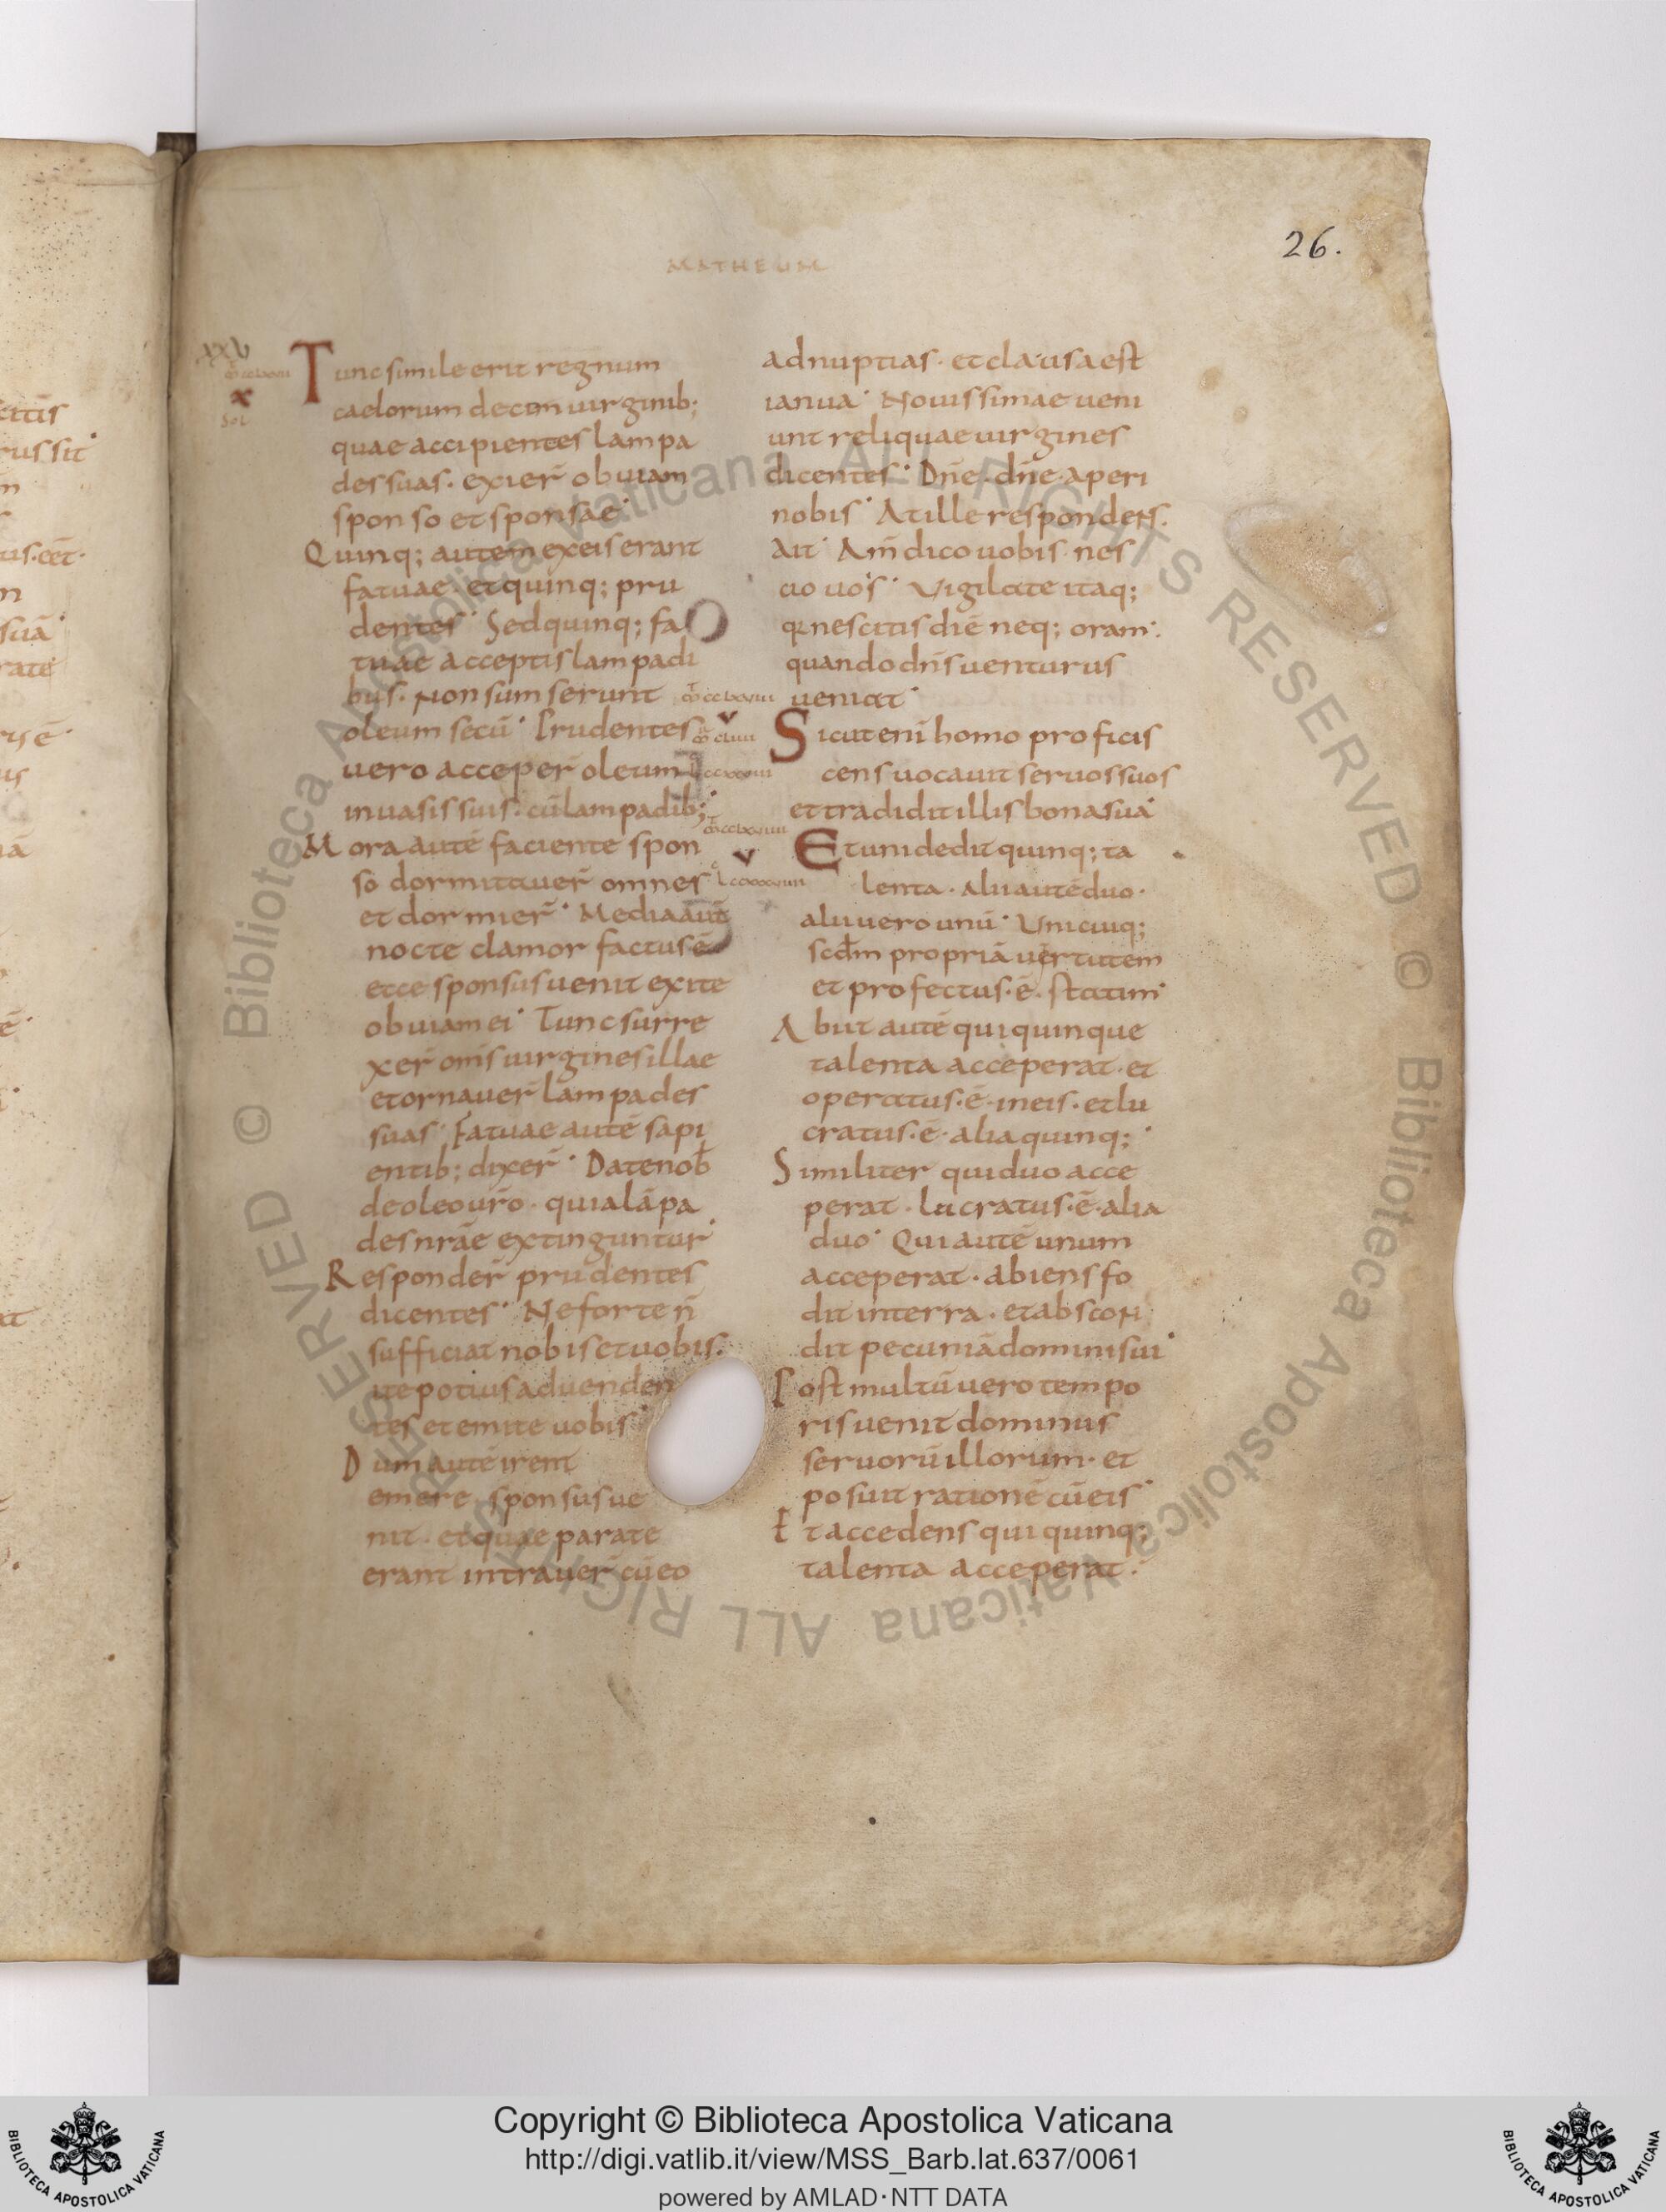 26.
MATHEUM
XXV
Tunc simile erit regnum
caelorum decem uirginib;
quae accipientes lampa
des suas. exier̄ obuiam
sponso et sponsae
Quinq; autem ex eis erant
fatuae. et quinq; pru
dentes Sed quinq; fa
tuae acceptis lampadi
bus. Non sumserunt
oleum secū Prudentes
uero acceper̄ oleum
in uasis suis. cū lampadib;
Mora autē faciente spon
so dormitauer̄ omnes
et dormier̄ Media autē
nocte clamor factus ē
ecce sponsus uenit exite
obuiam ei Tunc surre
xer̄ om̄s uirgines illae
et ornauer̄ lampades
suas Fatuae autē sapi
entib; dixer̄ Date nob̄
de oleo ur̄o. quia lāpa
des nrāe extinguntur
Responder̄ prudentes
dicentes Ne forte n̄
sufficiat nobis et uobis.
ite potius ad uenden
tes et emite uobis
Dum autē irent
emere. sponsus ue
nit. et quae parate
erant intrauer̄ cū eo
ad nuptias. et clausa est
ianua Nouissimae ueni
unt reliquae uirgines
dicentes Dn̄e. dn̄e. aperi
nobis At ille respondens.
ait Am̄ dico uobis nes
cio uos Vigilate itaq;
qr nescitis diē neq; oram.
quando dn̄s uenturus
ueniat
Sicut eni homo proficis
cens uocauit seruos suos
et tradidit illis bona sua
Et uni dedit quinq; ta
lenta. alii autē duo.
alii uero unū Unicuiq;
scd̄m propriā uirtutem
et profectus. ē. statim
Abiit autē qui quinque
talenta acceperat. et
operatus. ē. in eis. et lu
cratus. ē. alia quinq;
Similiter qui duo acce
perat. lucratus. ē. alia
duo Qui autē unum
acceperat. abiens fo
dit in terra. et abscon
dit pecuniā domini sui
Post multū uero tempo
ris uenit dominus
seruorū illorum. et
posuit rationē cū eis
Et accedens qui quinq;
talenta acceperat.
© Biblioteca Apostolica Vaticana ALL RIGHTS RESERVED © Biblioteca Apostolica Vaticana ALL RIGHTS RESERVED
Copyright © Biblioteca Apostolica Vaticana
http://digi.vatlib.it/view/MSS_Barb.lat.637/0061
powered by AMLAD·NTT DATA
BIBLIOTECA APOSTOLICA VATICANA
BIBLIOTECA APOSTOLICA VATICANA